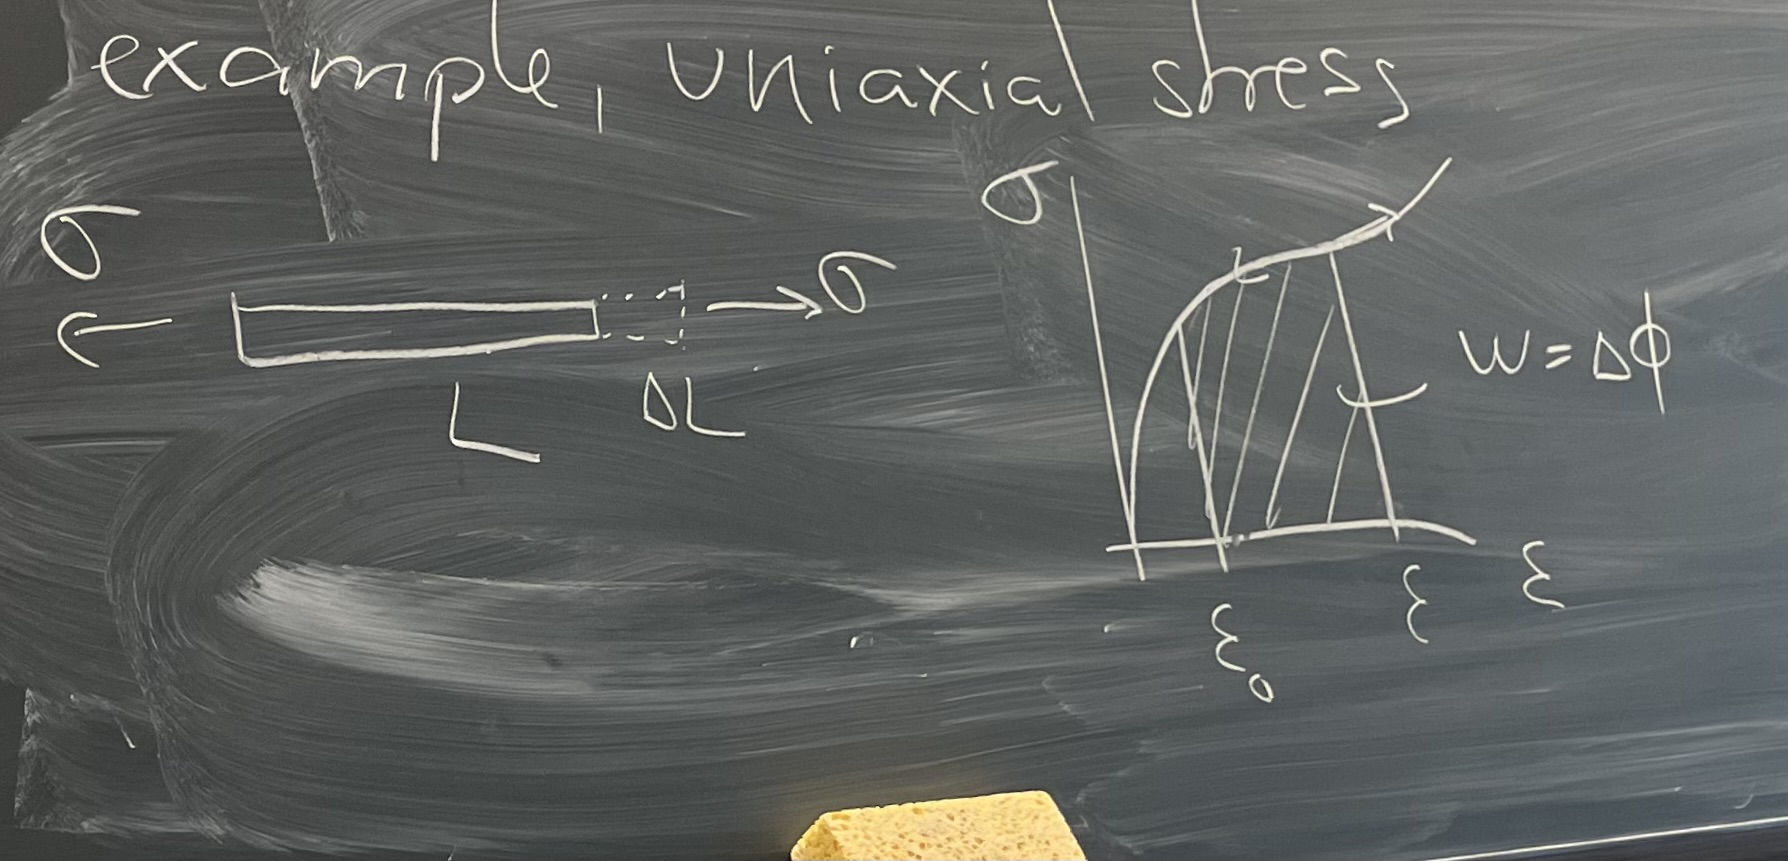 example, uniaxial stress
σ
σ
σ
L
ΔL
W = Δϕ
ε₀
ε
ε